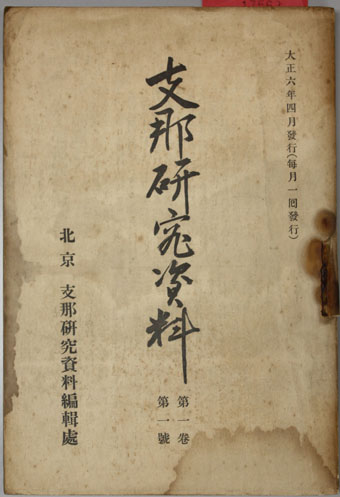 大正六年四月發行(每月一囘發行)
支那研究資料
第一卷
第一號
北京 支那研究資料編輯處